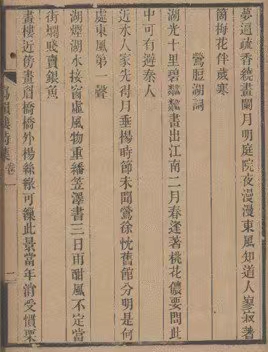 夢逗疏香繞畫闌月明庭院夜漫漫東風知道人寥寂著
箇梅花伴歲寒
鶯脰湖詞
湖光十里碧粼粼畫出江南二月春逢著桃花儂要問此
中可有避秦人
近水人家先得月垂楊時節未聞鶯徐忱舊館分明是何
處東風第一聲
湖煙湖水接窗虛風物重繙笠澤書三日雨酣風不定當
街爛賤賣銀魚
畫樓近傍畫眉橋橋外楊絲綠可繅此景當年消受慣
樓詩集卷一